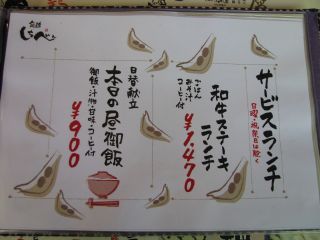 サービスランチ
日曜・祝祭日は除く
和牛ステーキ
ランチ
ごはん
みそ汁
コーヒー付
¥1,470
日替献立
本日の昼御飯
御飯・汁物・甘味・コーヒー付
¥900